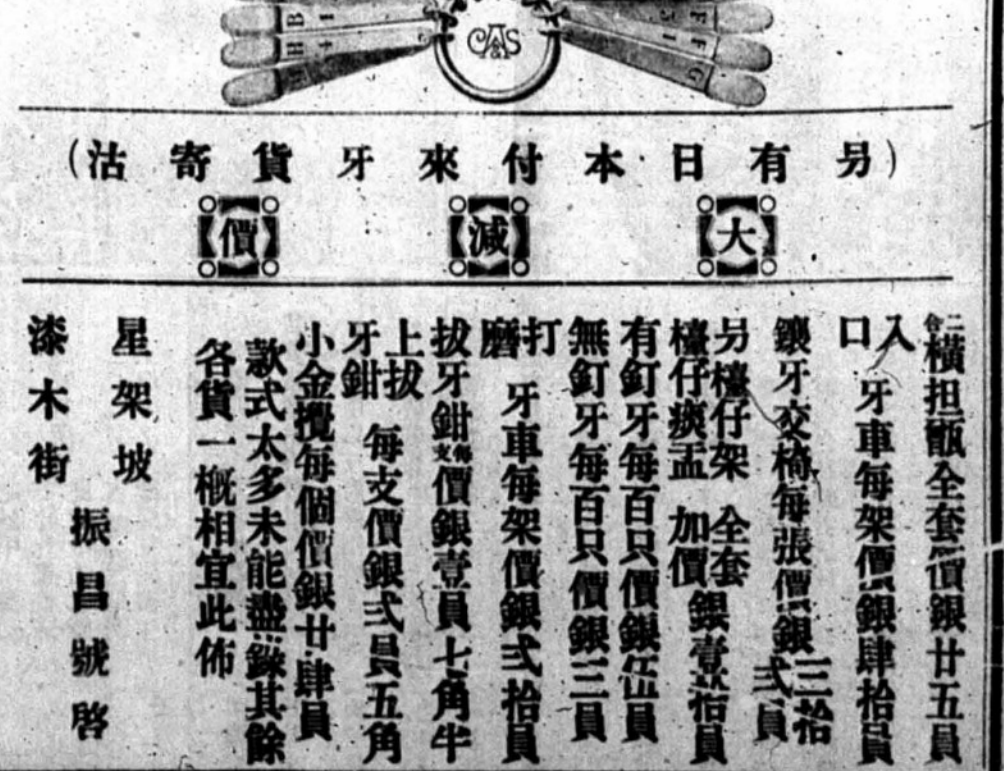 CA&S
(另有日本付來牙貨寄沽)
大減價
二合橫担甑全套價銀廿五員
入口牙車每架價銀肆拾員
鑲牙交椅每張價銀三拾弍員
另檯仔架檯仔痰盂全套加價銀壹拾員
有釘牙每百只價銀伍員
無釘牙每百只價銀三員
打磨牙車每架價銀弍拾員
拔牙鉗每支價銀壹員七角半
上拔牙鉗每支價銀弍員五角
小金攪每個價銀廿肆員
款式太多未能盡錄其餘
各貨一概相宜此佈
星架坡
漆木街
振昌號啓